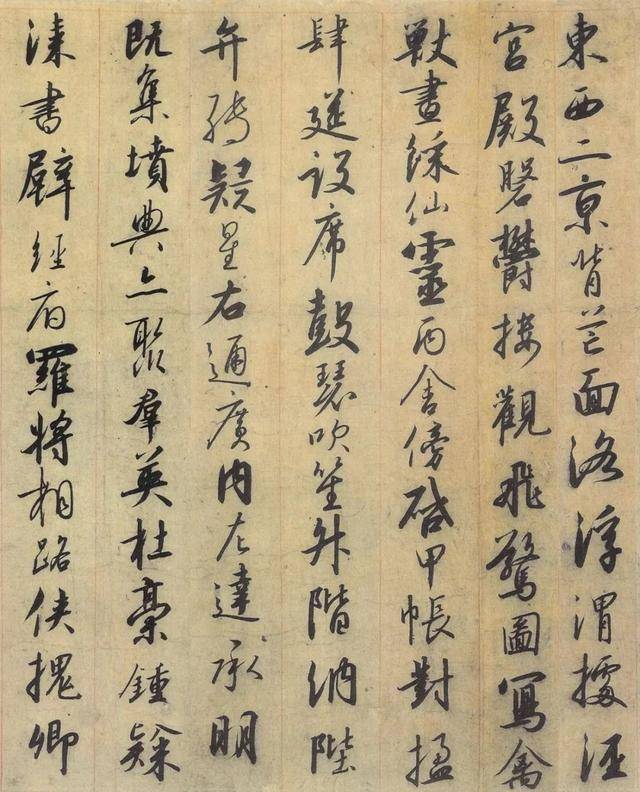 東西二京背芒面洛浮渭據涇
宮殿磐鬱樓觀飛驚圖寫禽
獸畫綵仙靈丙舍傍啟甲帳對楹
肆筵設席鼓瑟吹笙升階納陛
弁轉疑星右通廣內左達承明
既集墳典亦聚群英杜稾鍾隸
漆書壁經府羅將相路俠槐卿